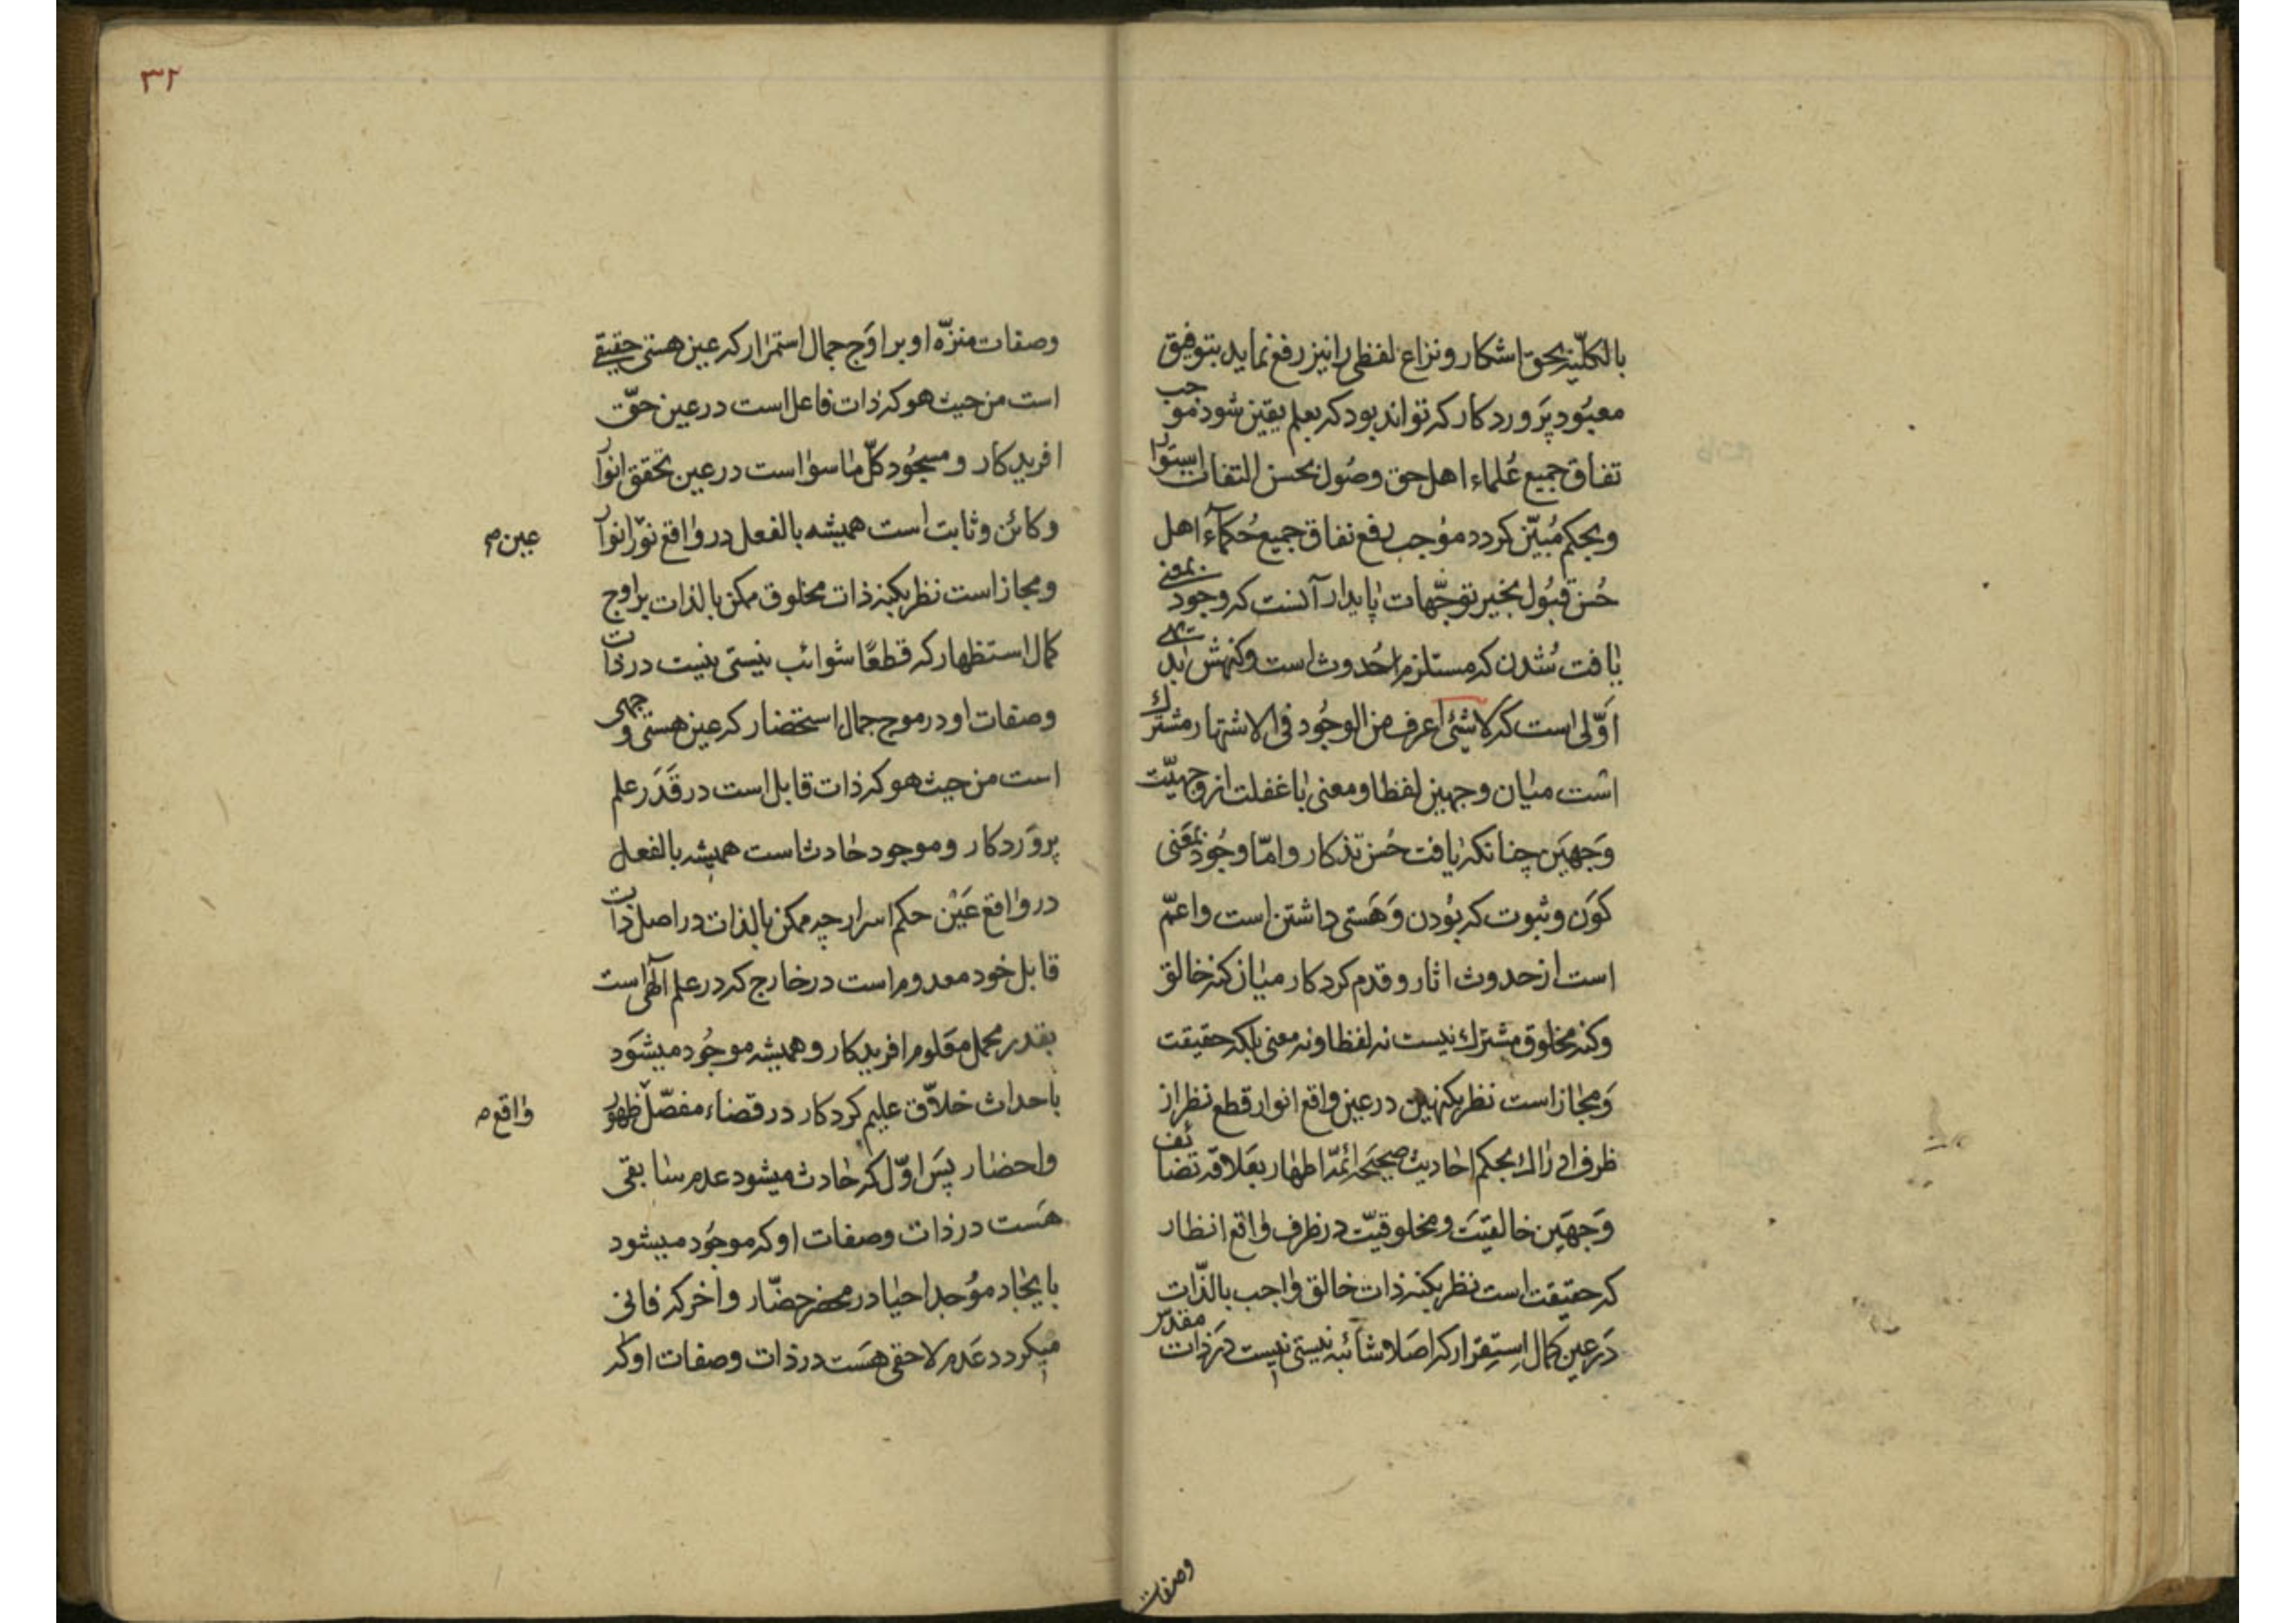 بالکلّیّه بحقّ اشکار و نزاع لفظی را نیز رفع نماید بتوفیق
معبُود پَروردکار که تواند بود که بعلم یقین شود موجب
تفاق جمیع عُلماء اهل حق وصُول بحسن التفات استوا
و بحکم مُبیّن کردد موُجب رفع نفاق جمیع حُکمآء اهل
حُسن قبُول بخیر توجّهات پایدار آنست که وجود بمعنی
یافت شُدن که مستلزم احُدوث است وکنهش بدیهی
اَوّلی است که لا شیٔ اعرف من الوجُود فی الاشتهار مشترك
اشت میٰان وجهین لفظا و معنی با غفلت از وجهیّت
وَجهَین چنانکه یافت حُسن تذکار و امّا وجُود بمَعنی
کوَن و ثبوت که بُودن وَ هَستی داشتن است و اعمّ
است از حدوث اثار و قدم کردکار میٰان کنه خالق
وکنه مخلوق مشترك نیست نه لفظا و نه معنی بلکه حقیقت
وَ مجٰاز است نظر بکنهین در عین واقع انوار قطع نظر از
ظرف ادراك بحکم احٰادیث صحیحَه ائمّهٔ اطهٰار بعَلاقه تضایُف
وَجهَین خالقیّتَ و مخلوقیّت در ظرف واقع انظار
که حقیقت است نظر بکنه ذات خالق وٰاجب بالذّات
دَر عین کمال اِستِقرار که اصَلا شٰائبه نیستی نیست دَر ذات مقدّس
وصفات
٣٢
وصفات منزّه او بر اوَج جمال استمرٰار که عین هستی حقیقے
است من حیث هو که ذات فاعل است در عین حقّ
افریدکار و مسجُود کلّ ما سوٰا است در عین تحقق انوار
و کائن و ثابت است همیشه بالفعل در وٰاقع نوٓر انوار
عین م
و مجاز است نظر بکنه ذات مخلوق ممکن بالذات بر اوج
کمال استظهار که قطعًا شوائب نیستی نیست در ذات
وصفات او در موج جمال استحضار که عین هستی وجهی
است من حیث هو که ذات قابل است در قَدَر علم
پروَردکار و موجود حٰادث است همیشه بالفعل
در وٰاقع عَیْن حکم اسرار چه ممکن بالذات در اصل ذات
قابل خود معدوم است در خارج که در علم آلهی است
بقدر مجمل معَلوم افریدکار و همیشه موجُود میشوَد
باحداث خلاّق علیم کردکار در قضاء مفصّل ظهور
وٰاقع م
و احضٰار پسَ اوّل که حٰادث میشود عدم سٰابقی
هَست در ذات وصفات او که موجوَد میشود
بایجٰاد موُجد احیٰا در محضر حضّار و اخر که فانی
میکردد عَدم لاحقی هسَت در ذات وصفات او که